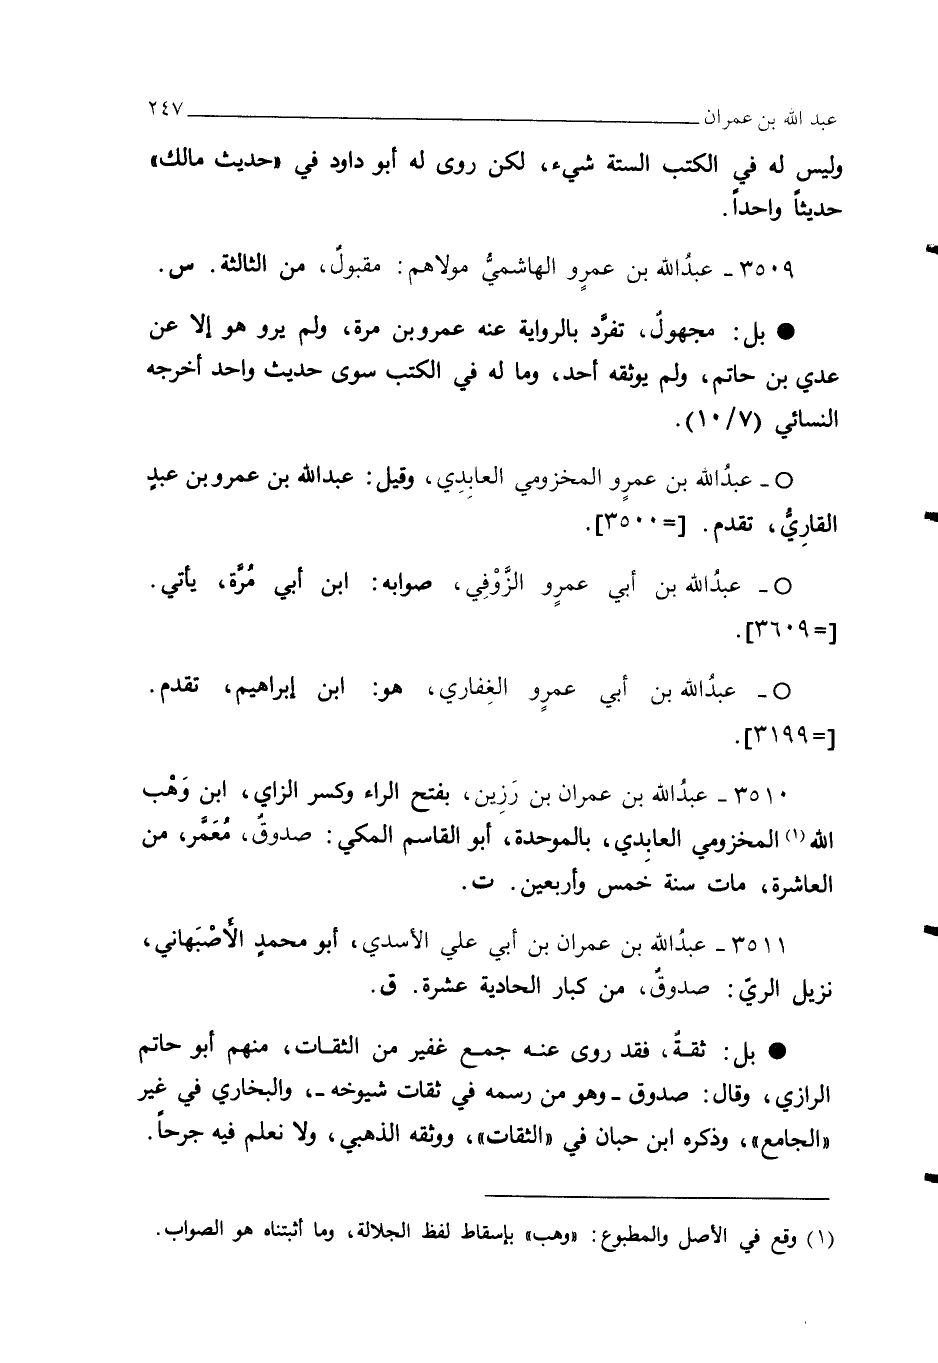 عبد الله بن عمران ٢٤٧
وليس له في الكتب الستة شيء، لكن روى له أبو داود في «حديث مالك»
حديثاً واحداً.
٣٥٠٩ ـ عبدُالله بن عمرٍو الهاشميُّ مولاهم: مقبولٌ، من الثالثة. س.
● بل: مجهولٌ، تفرَّد بالرواية عنه عمرو بن مرة، ولم يرو هو إلا عن
عدي بن حاتم، ولم يوثقه أحد، وما له في الكتب سوى حديث واحد أخرجه
النسائي (١٠/٧).
○ ـ عبدُالله بن عمرٍو المخزومي العابِدِي، وقيل: عبدالله بن عمرو بن عبدٍ
القارِيُّ، تقدم. [=٣٥٠٠].
○ ـ عبدُالله بن أبي عمرٍو الزَّوْفِي، صوابه: ابن أبي مُرَّة، يأتي.
[=٣٦٠٩].
○ ـ عبدُالله بن أبي عمرٍو الغِفاري، هو: ابن إبراهيم، تقدم.
[=٣١٩٩].
٣٥١٠ ـ عبدُالله بن عمران بن رَزِين، بفتح الراء وكسر الزاي، ابن وَهْب
الله(١) المخزومي العابِدي، بالموحدة، أبو القاسم المكي: صدوقٌ، مُعَمَّر، من
العاشرة، مات سنة خمس وأربعين. ت.
٣٥١١ ـ عبدُالله بن عمران بن أبي علي الأسدي، أبو محمدٍ الأَصْبَهاني،
نزيل الريّ: صدوقٌ، من كبار الحادية عشرة. ق.
● بل: ثقةٌ، فقد روى عنه جمع غفير من الثقات، منهم أبو حاتم
الرازي، وقال: صدوق ـ وهو من رسمه في ثقات شيوخه ـ، والبخاري في غير
«الجامع»، وذكره ابن حبان في «الثقات»، ووثقه الذهبي، ولا نعلم فيه جرحاً.
(١) وقع في الأصل والمطبوع: «وهب» بإسقاط لفظ الجلالة، وما أثبتناه هو الصواب.